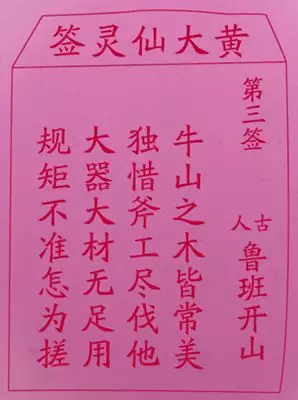 黄大仙灵签
第三签
古人 鲁班开山
牛山之木皆常美
独惜斧工尽伐他
大器大材无足用
规矩不准怎为搓